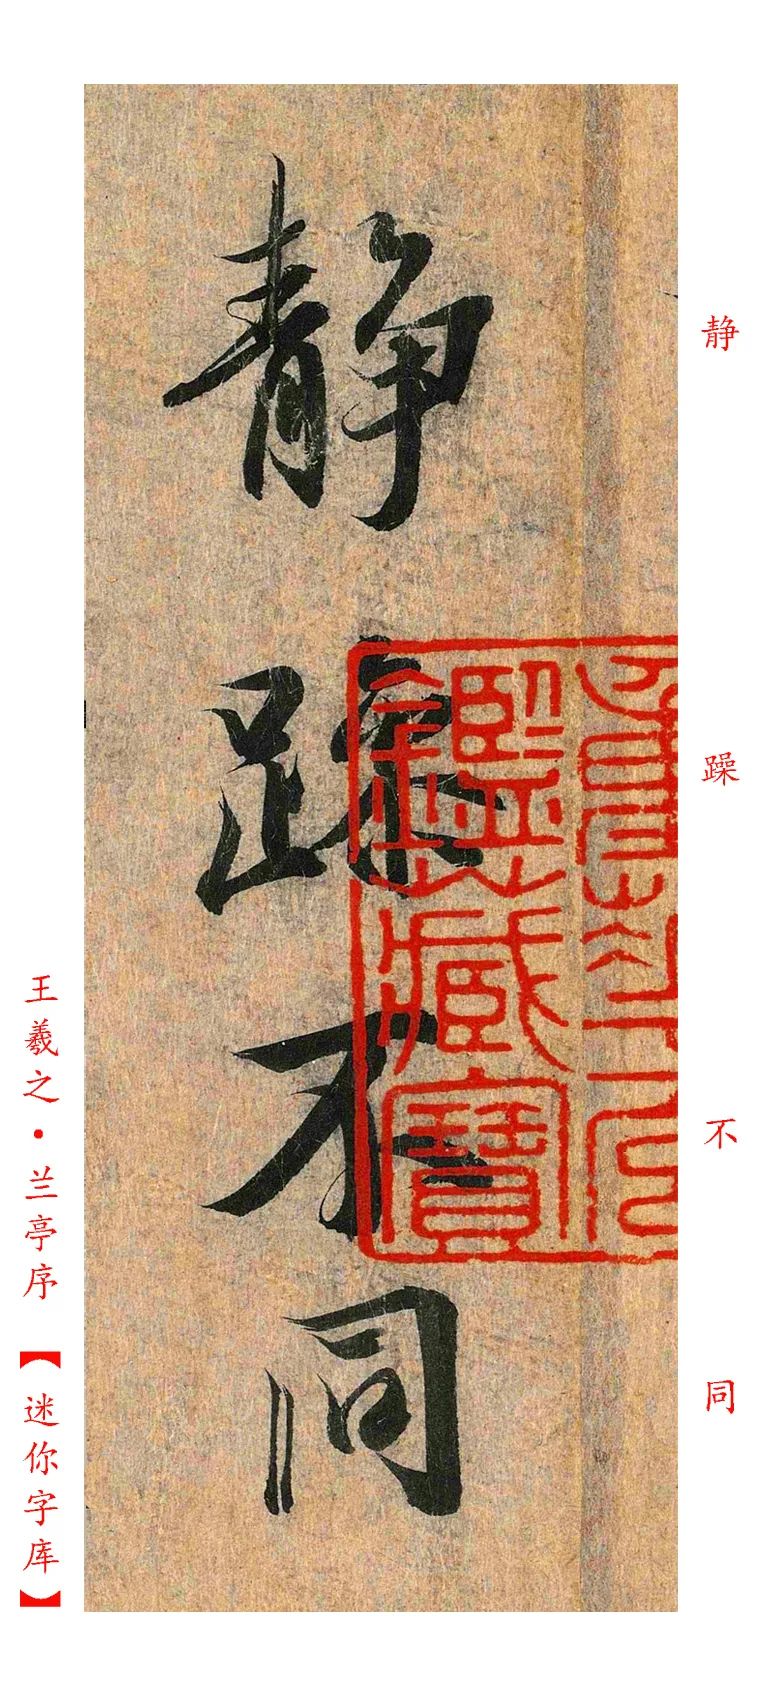 静躁不同
静
躁
不
同
鑑藏寶
王羲之·兰亭序【迷你字库】